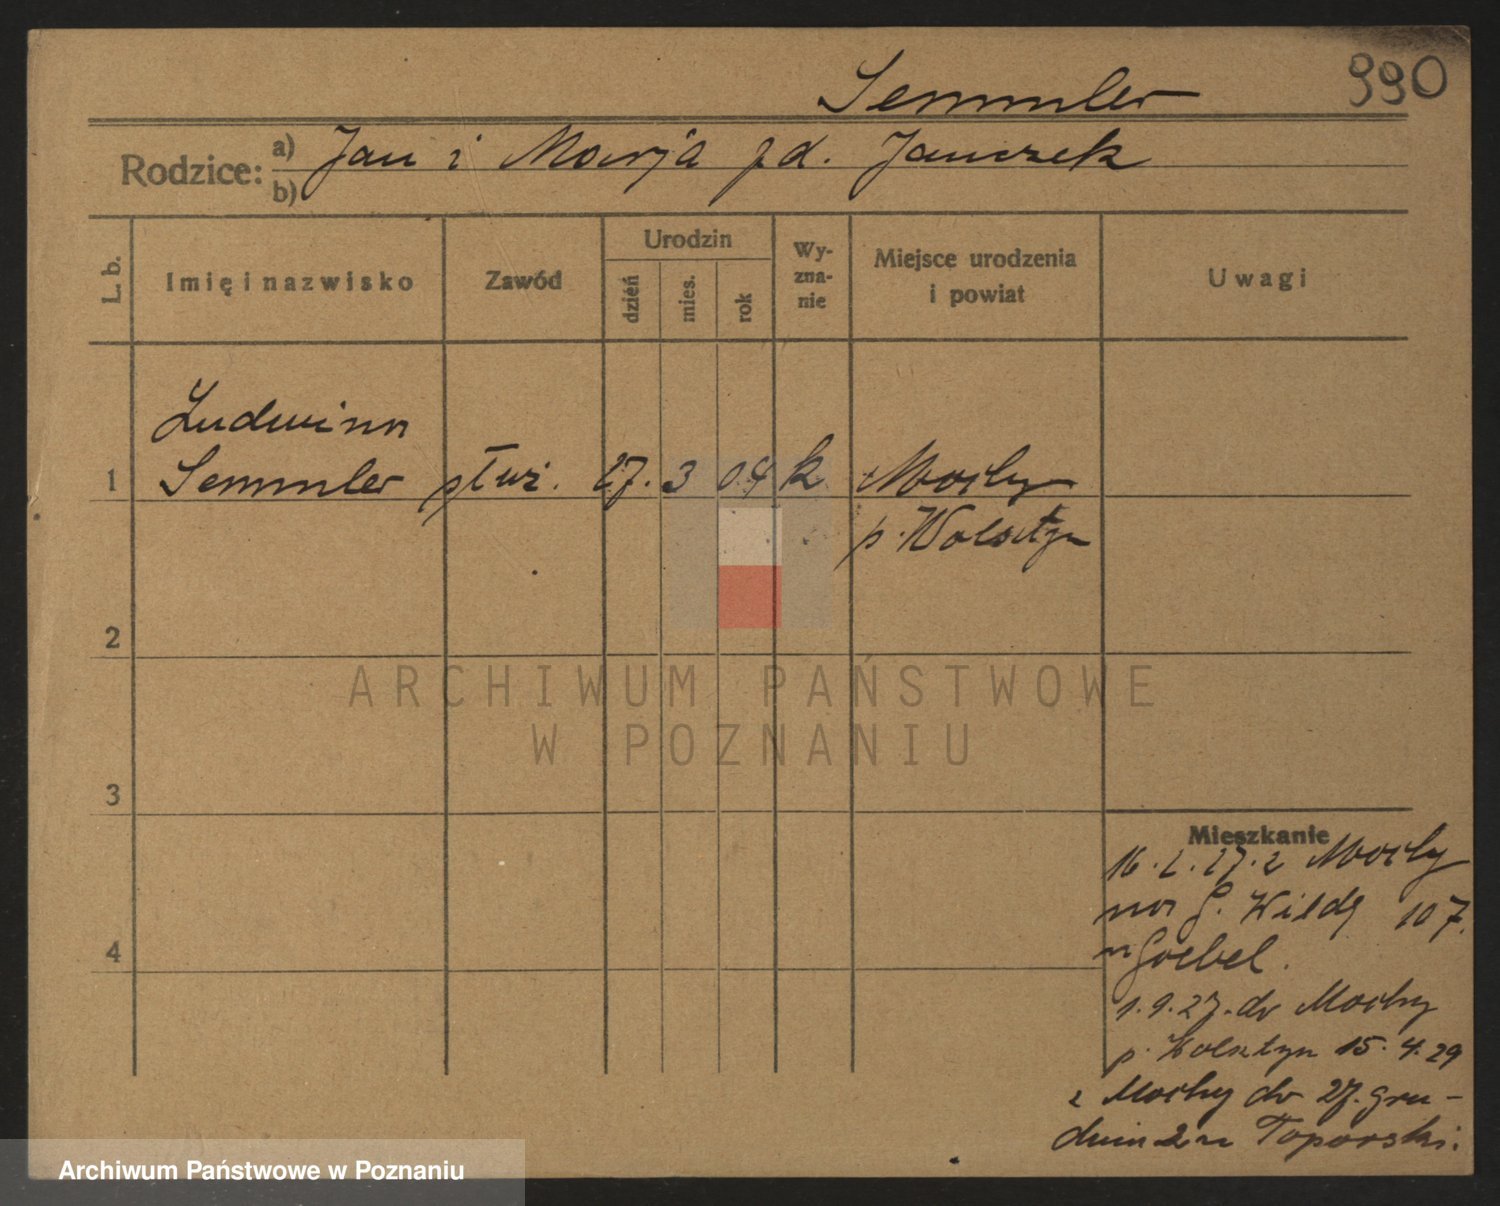 Semmler
990
Rodzice: a) Jan i Marja zd. Janczek
b)
L. b.
Imię i nazwisko
Zawód
Urodzin
dzień
mies.
rok
Wy-
zna-
nie
Miejsce urodzenia
i powiat
Uwagi
Ludwina
1 Semmler służ. 27. 3 04 k Mochy
p. Wolsztyn
2
3
4
Mieszkanie
16. 2. 27. z Mochy
na G. Wildę 107.
u Goebel.
1. 9. 27. do Mochy
p. Wolsztyn 15. 4. 29
z Mochy do 27. gru-
dnia 2 u Toporski.
ARCHIWUM PAŃSTWOWE
W POZNANIU
Archiwum Państwowe w Poznaniu